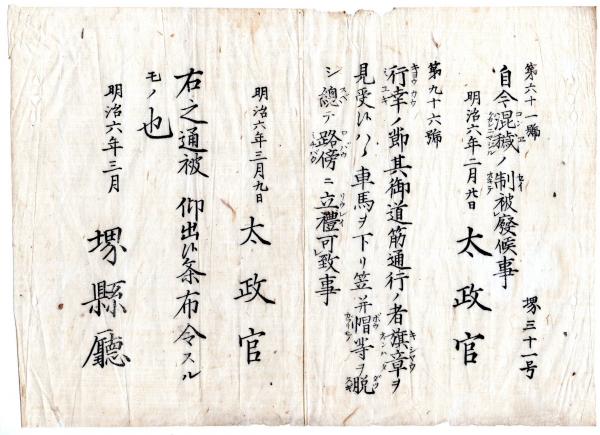 第六十一號
自今混穢ノ制被廢候事
堺三十一号
明治六年二月廿日
太政官
第九十六號
行幸ノ節其御道筋通行ノ者旗章ヲ
見受候ハヽ車馬ヲ下リ笠并帽等ヲ脱
シ總テ路傍ニ立禮可致事
明治六年三月九日
太政官
右之通被 仰出候条布令スル
モノ也
明治六年三月
堺縣廳